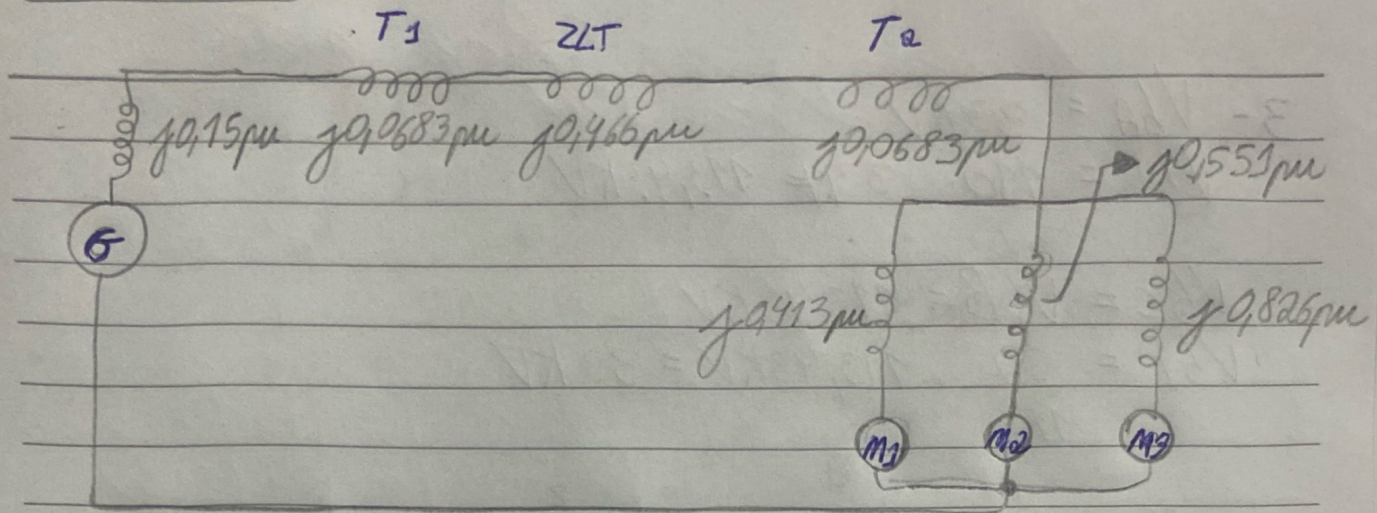 T1 ZLT T2
j0,15pu j0,0683pu j0,466pu j0,0683pu
j0,551pu
G
j0,413pu j0,826pu
M1 M2 M3